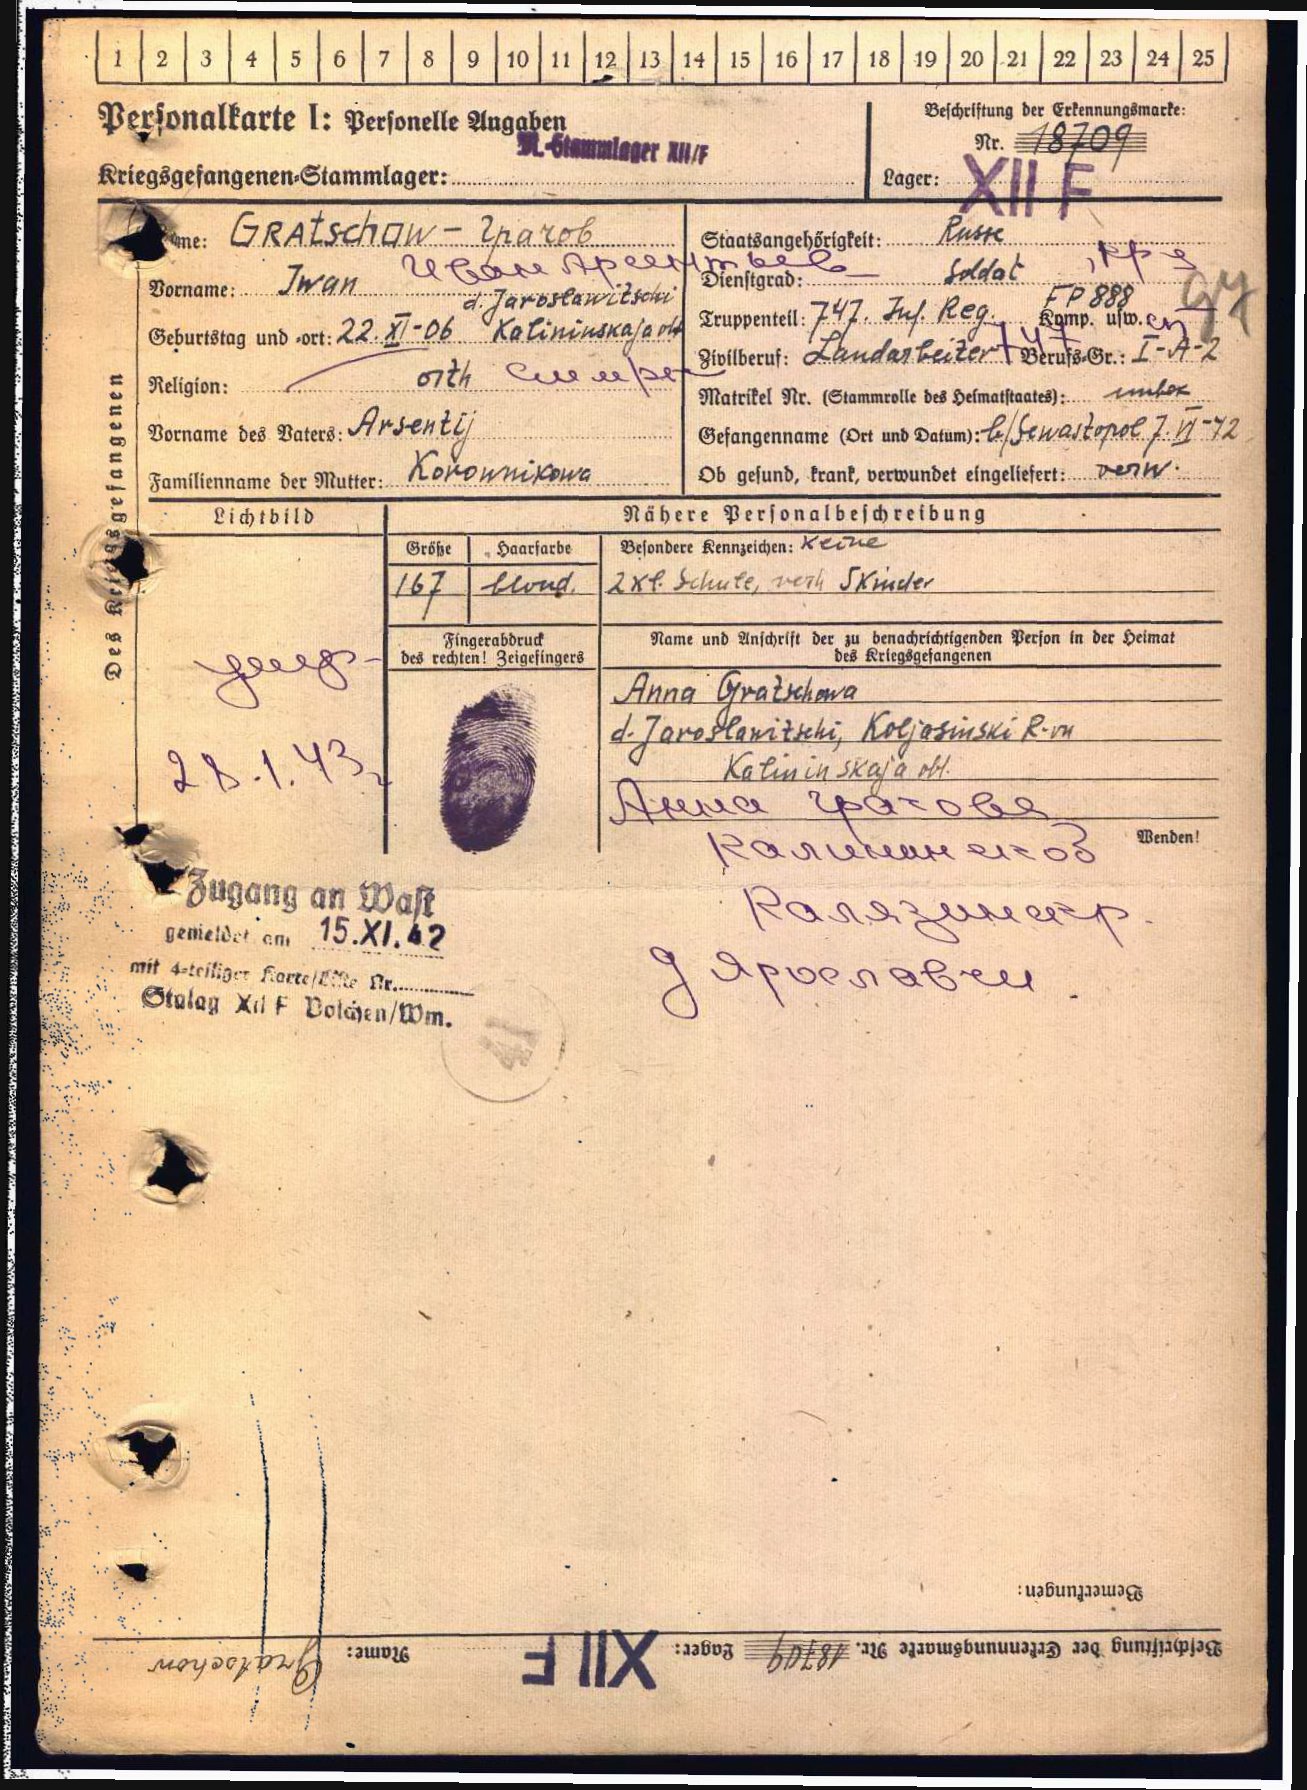 1 2 3 4 5 6 7 8 9 10 11 12 13 14 15 16 17 18 19 20 21 22 23 24 25
Personalkarte I: Personelle Angaben
M.-Stammlager XII/F
Kriegsgefangenen-Stammlager:
Beschriftung der Erkennungsmarke:
Nr. 18709
Lager: XII F
Des Kriegsgefangenen
me: GRAtschow – Грачов
Vorname: Iwan Иван Арсентьев
d. Jaroslawitschi
Geburtstag und -ort: 22.XI-06 Kalininskaja obl
Religion: orth
Vorname des Vaters: Arsentij
Familienname der Mutter: Korownikowa
Staatsangehörigkeit: Russe
Dienstgrad: Soldat
FP 888
Truppenteil: 747. Inf. Reg. Komp. usw.
747
Zivilberuf: Landarbeiter Berufs-Gr.: I-A-2
Matrikel Nr. (Stammrolle des Heimatstaates): unbek
Gefangenname (Ort und Datum): b/Sewastopol 7.VI-42
Ob gesund, krank, verwundet eingeliefert: verw.
Lichtbild
Nähere Personalbeschreibung
Größe Haarfarbe Besondere Kennzeichen: keine
167 blond. 2 Kl. Schule, verh 5 Kinder
Fingerabdruck
des rechten! Zeigefingers
Name und Anschrift der zu benachrichtigenden Person in der Heimat
des Kriegsgefangenen
Anna Gratschowa
d. Jaroslawitschi, Koljasinski R-on
Kalininskaja obl.
Анна Грачова
Калининскоб
Калязинскр.
д Ярославчи.
Wenden!
умер
28.1.43г
Zugang an Wast
gemeldet am 15.XI.42
mit 4-teiliger Karte/Liste Nr.
Stalag XII F Bolchen/Wm.
41
Bemerkungen:
Beschriftung der Erkennungsmarke Nr. 18709 Lager: XII F Name: Gratschow